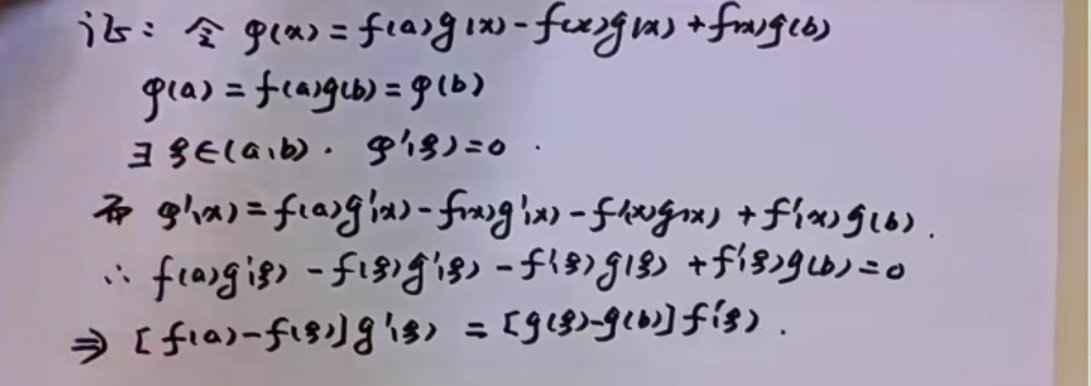 证: 令 φ(x) = f(a)g(x) - f(x)g(x) + f(x)g(b)
φ(a) = f(a)g(b) = φ(b)
∃ ξ∈(a,b). φ'(ξ)=0.
而 φ'(x) = f(a)g'(x) - f(x)g'(x) - f'(x)g(x) + f'(x)g(b).
∴ f(a)g'(ξ) - f(ξ)g'(ξ) - f'(ξ)g(ξ) + f'(ξ)g(b) = 0
⇒ [f(a)-f(ξ)]g'(ξ) = [g(ξ)-g(b)]f'(ξ).